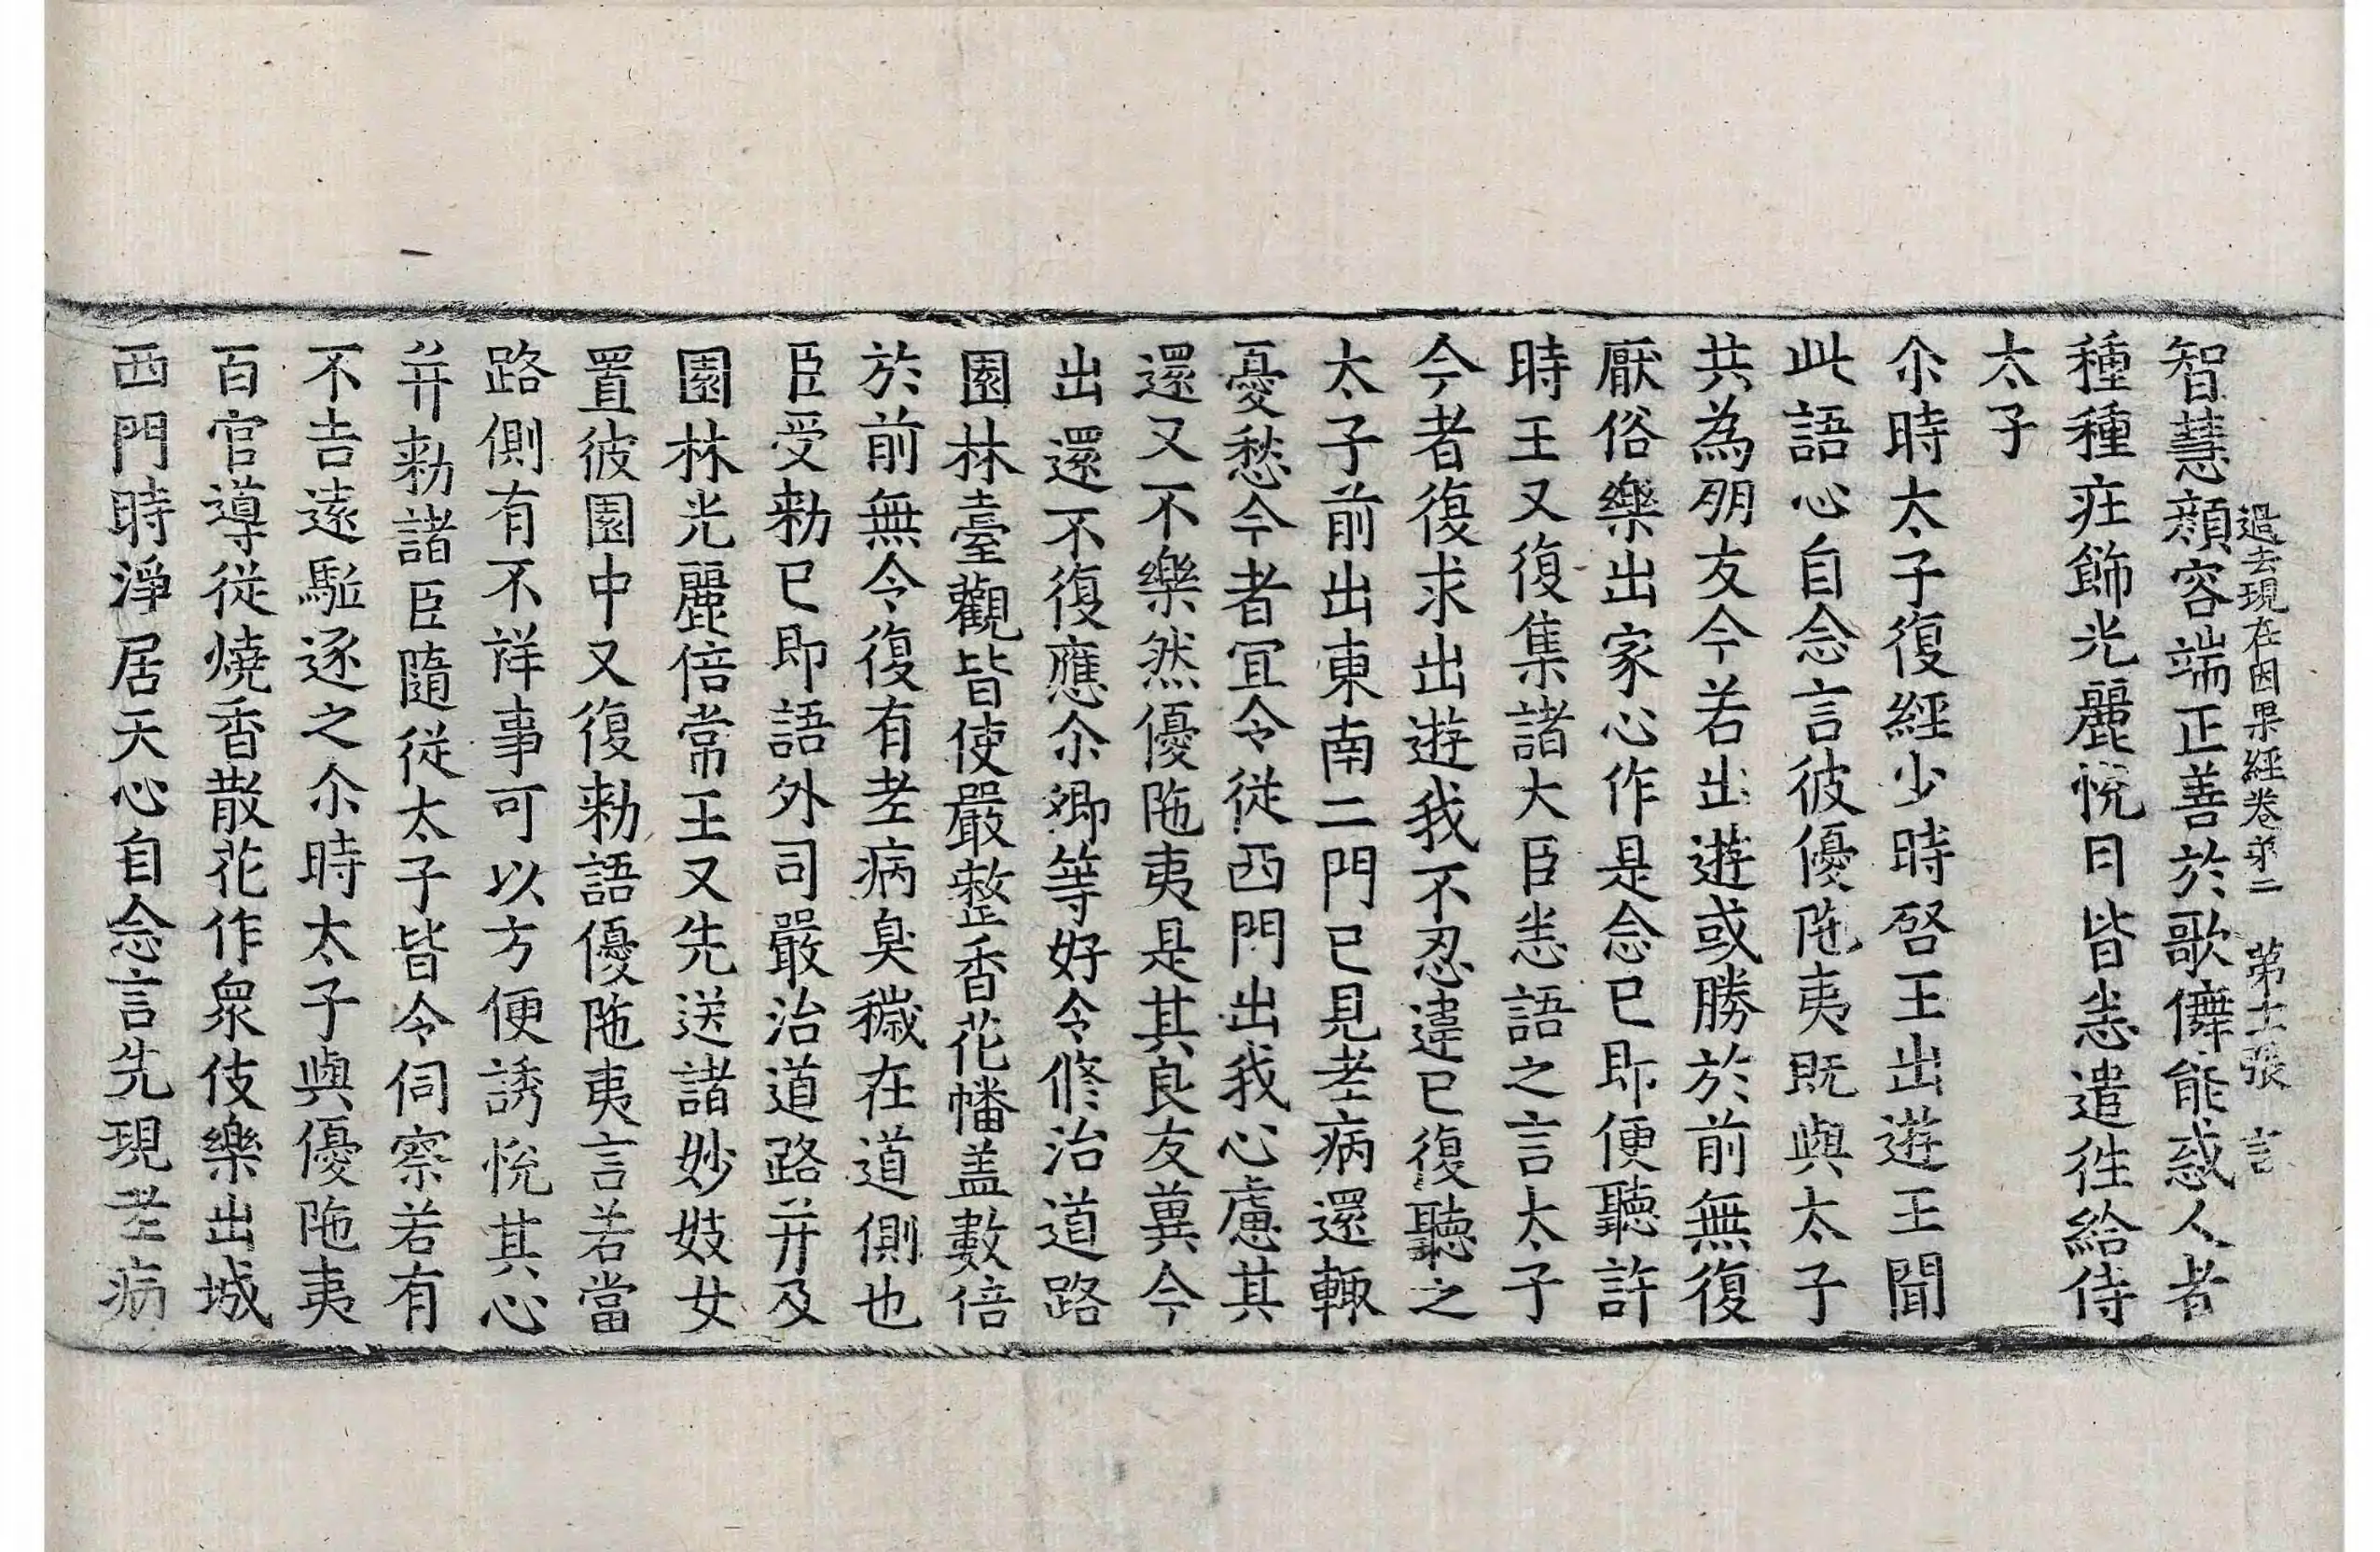 過去現在因果經卷第二 第十二張 言
智慧顏容端正善於歌儛能惑人者
種種疘飾光麗悅目皆恙遣徃給侍
太子
尒時太子復經少時啓王出遊王聞
此語心自念言彼優陁夷既與太子
共為朋友今若出遊或勝於前無復
厭俗樂出家心作是念已即便聽許
時王又復集諸大臣悉語之言太子
今者復求出遊我不忍違已復聽之
太子前出東南二門已見老病還輙
憂愁今者冝令從西門出我心慮其
還又不樂然優陁夷是其良友兾今
出還不復應尒卿等好令修治道路
園林臺觀皆使嚴整香花幡盖數倍
於前無令復有老病臭穢在道側也
臣受勑已即語外司嚴治道路并及
園林光麗倍常王又先送諸妙妓女
置彼園中又復勑語優陁夷言若當
路側有不祥事可以方便誘悅其心
并勑諸臣隨從太子皆令伺察若有
不吉遠驅逐之尒時太子與優陁夷
百官導從燒香散花作衆伎樂出城
西門時淨居天心自念言先現老病